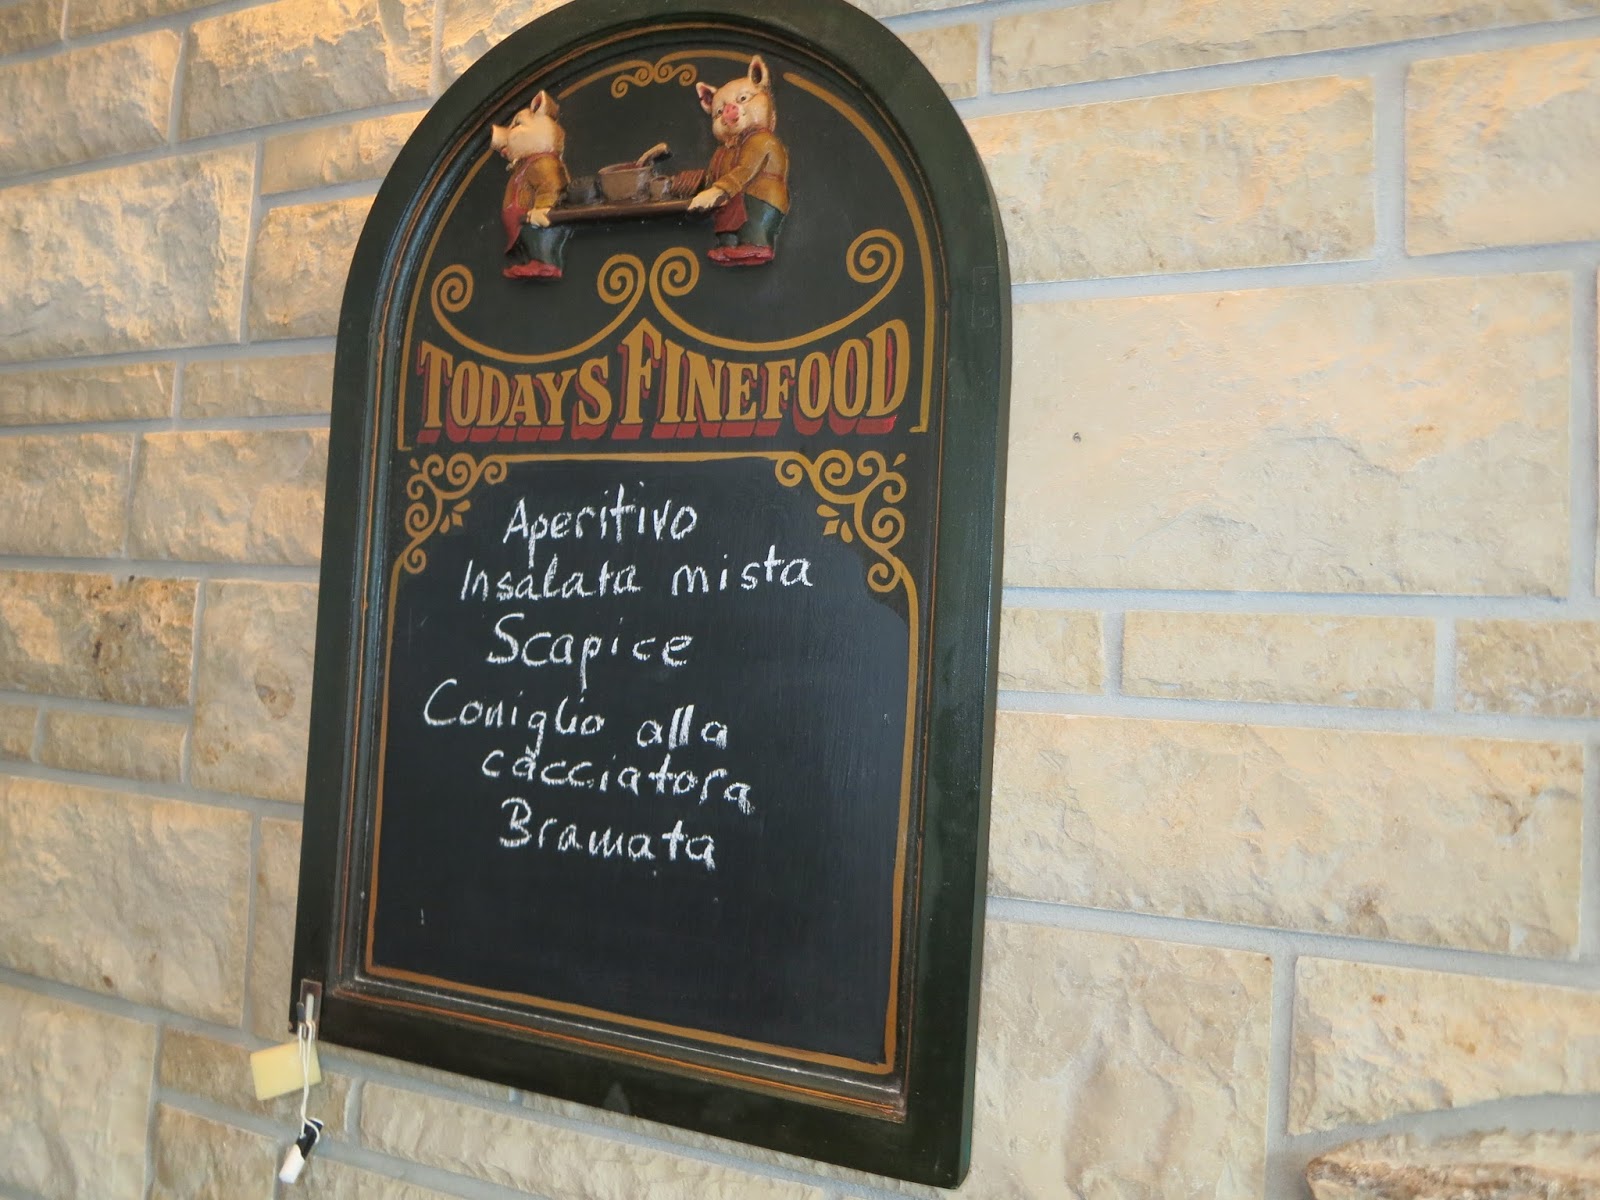 TODAYS FINEFOOD
Aperitivo
Insalata mista
Scapice
Coniglio alla
cacciatora
Bramata